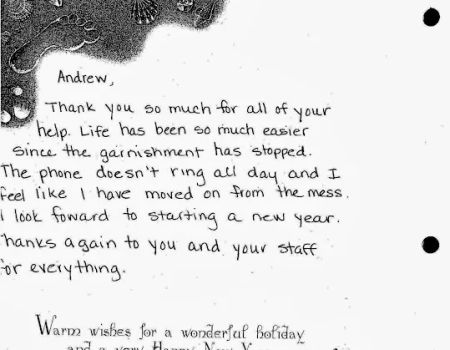 Andrew,
Thank you so much for all of your
help. Life has been so much easier
since the garnishment has stopped.
The phone doesn't ring all day and I
feel like I have moved on from the mess.
I look foward to starting a new year.
hanks again to you and your staff
for everything.
Warm wishes for a wonderful holiday
and a very Happy New Y